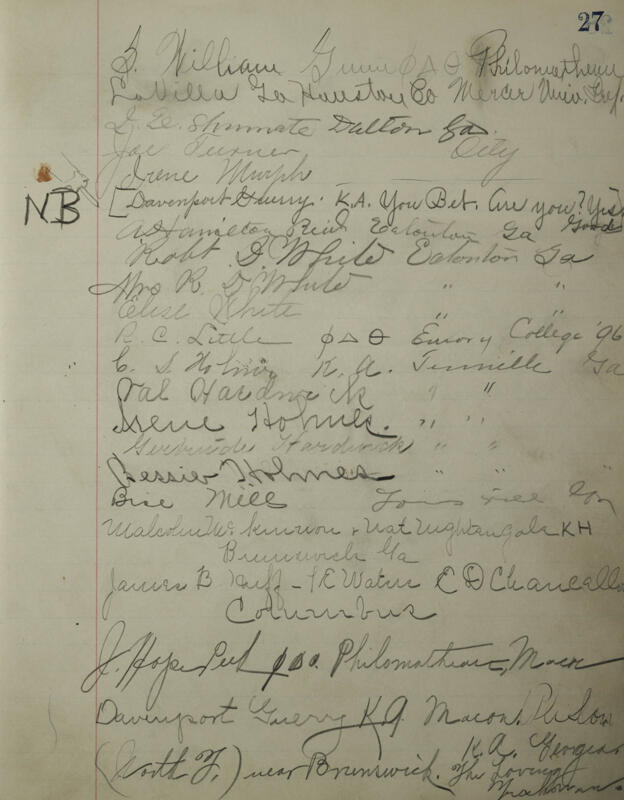 27
S. William Gunn Φ Δ Θ Philomathean
LaVilla Ga Houston Co Mercer Univ.
Shumate Dalton Ga.
Joe Turner City
Irene Murph
NB [Davenport Guerry. K.A. You Bet. Are you? Yes
A Hamilton Reid Eatonton Ga
Robt D White Eatonton Ga
Mrs R. D. White " "
Elise White
R. C. Little Φ Δ Θ Emory College '96
C. S. Holmes K. A. Tennille Ga
Val Hardwick " "
Irene Holmes. " "
Gertrude Hardwick " "
Bessie Holmes " "
Mill
Malcolm McKinnon & Nat Nightangale KH
Brunswick Ga
James B Huff - E D Chancello
Columbus
J. Hope Φ Δ Θ. Philomathean, Macon
Davenport Guerry K A Macon,
K. A.
(North Y.) near Brunswick. The Loving